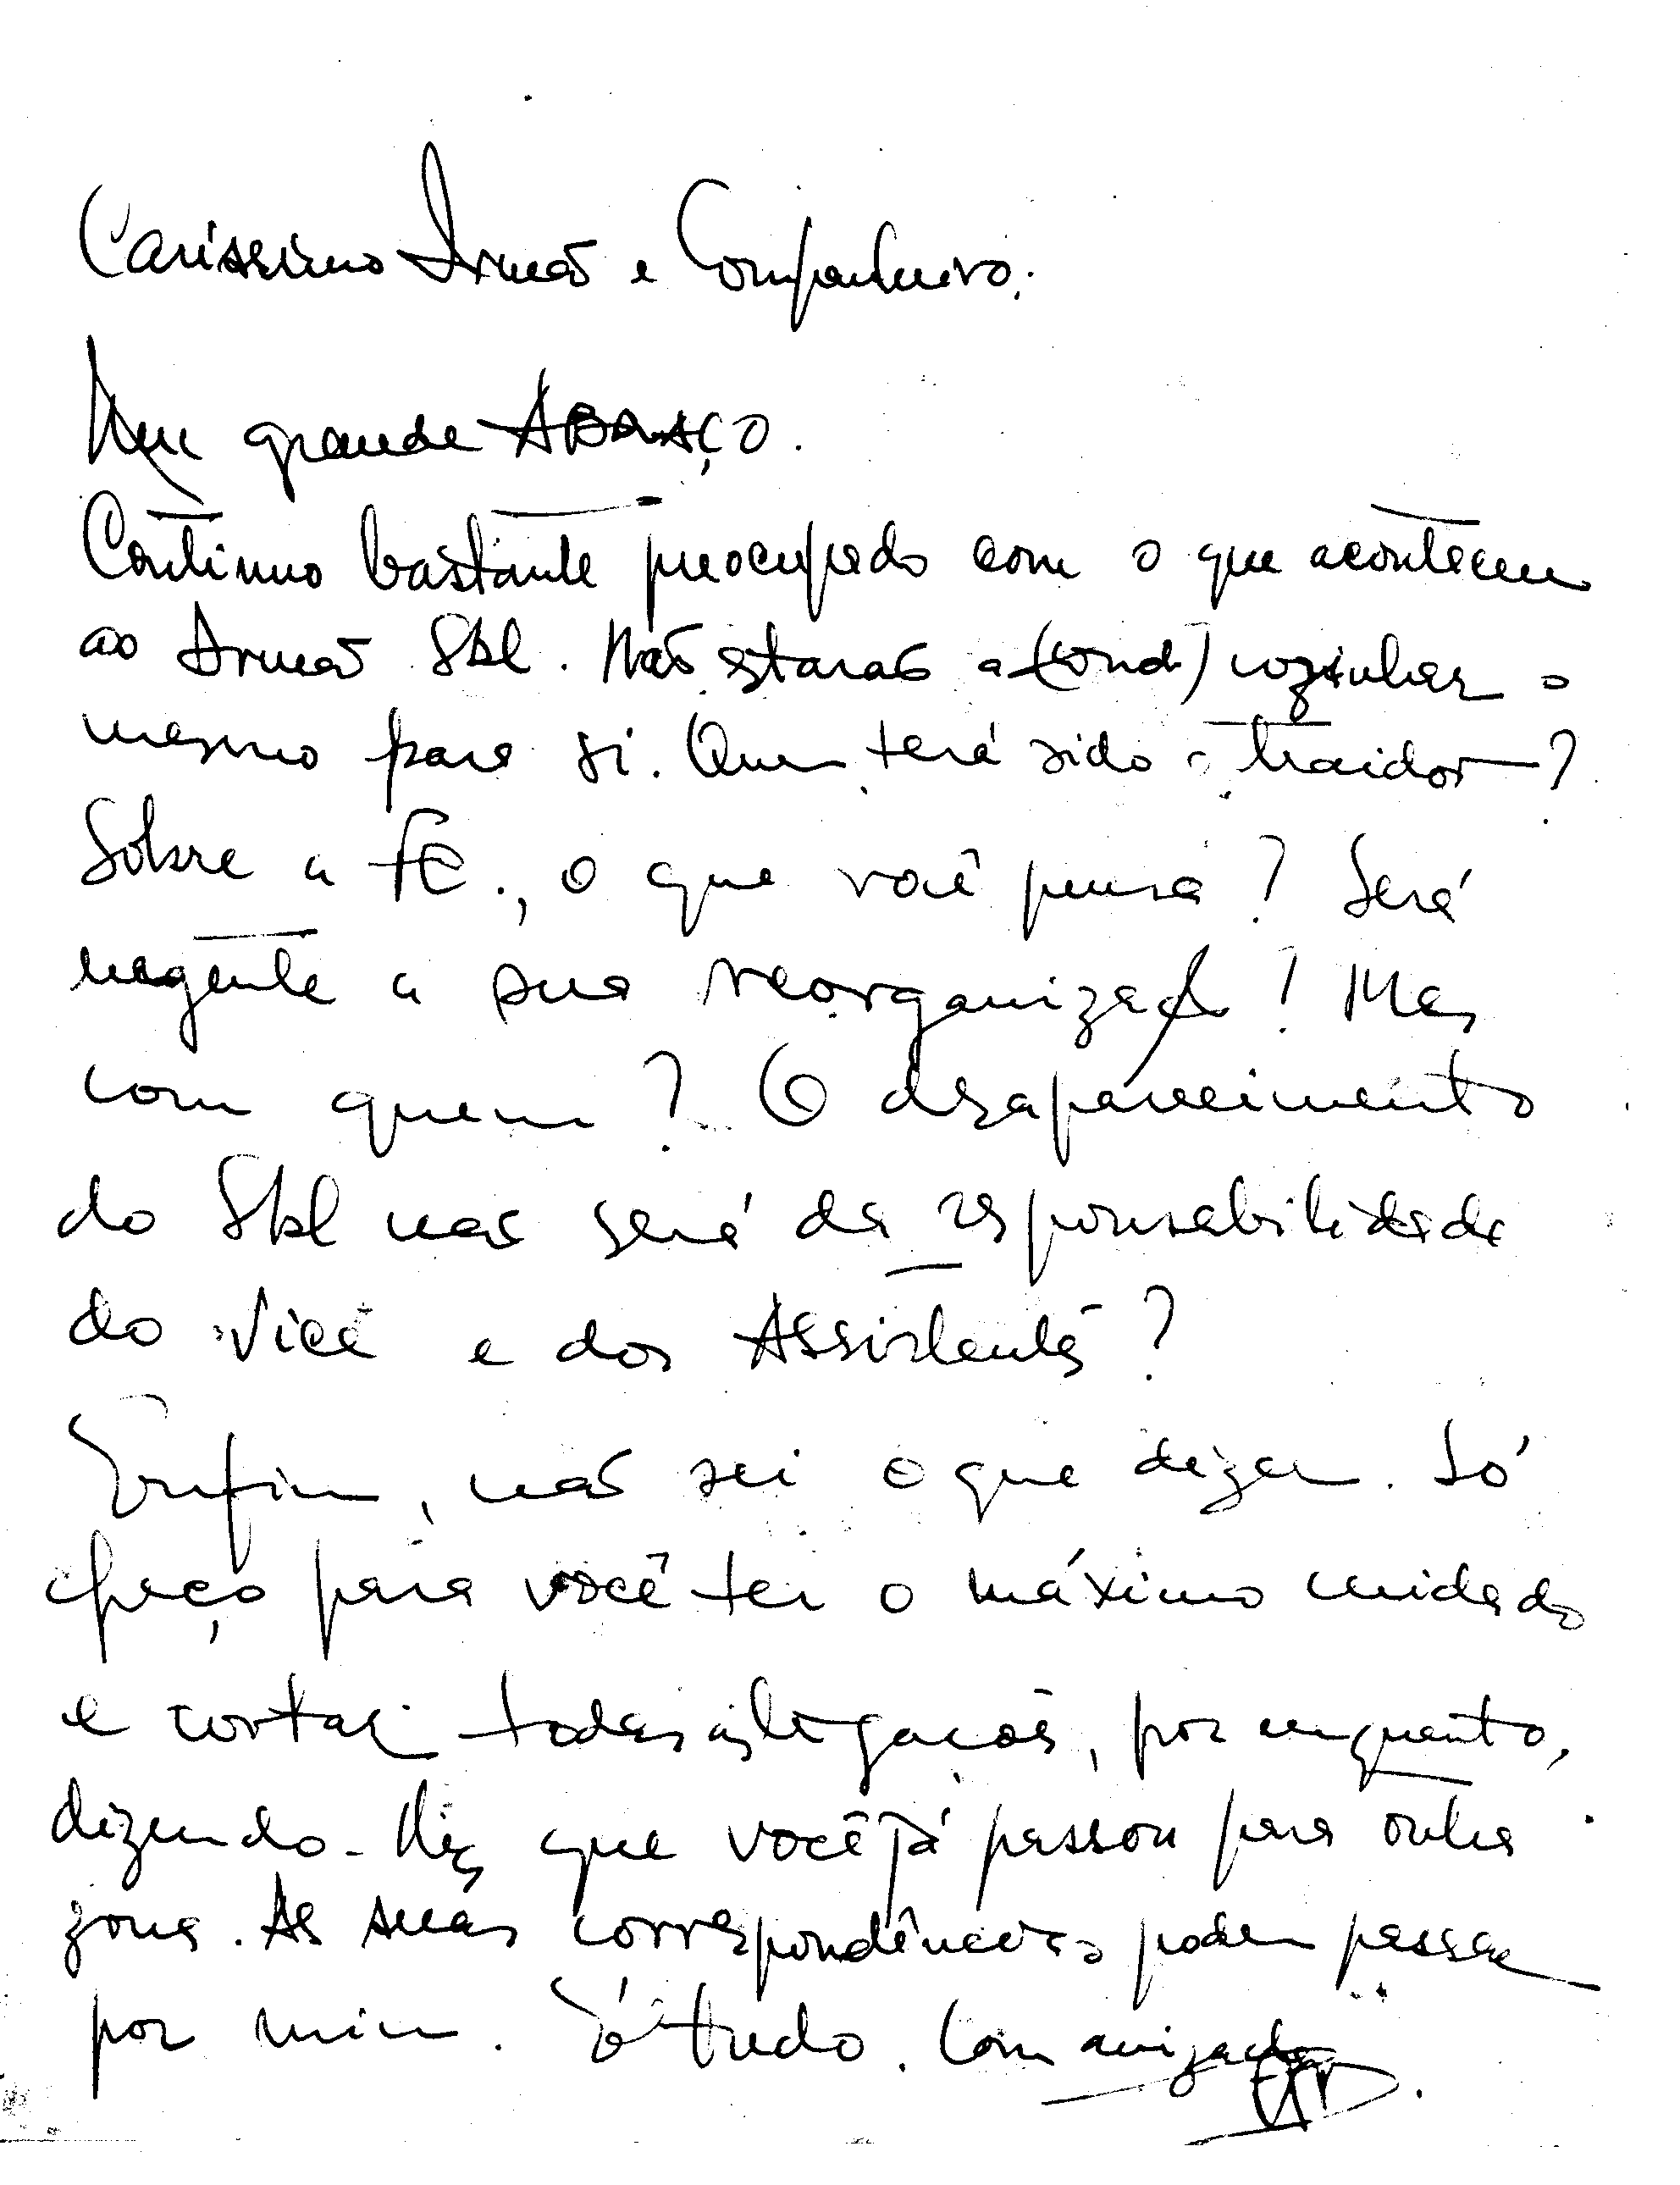 Caríssimo Irmão e Companheiro:
Um grande ABRAÇO.
Continuo bastante preocupado com o que aconteceu
ao Irmão Sbl. Não estarão a (cond) cozinhar o
mesmo para si. Quem terá sido o traidor?
Sobre a FE., o que você pensa? Será
urgente a sua reorganização! Mas
com quem? O desaparecimento
do Sbl não será da responsabilidade
do Vice e dos Assistentes?
Enfim, não sei o que dizer. Só
peço para você ter o máximo cuidado
e cortar todas as ligações, por enquanto,
dizendo-lhes que você já passou para outra
zona. As suas correspondências podem passar
por mim. É tudo. Com amizade